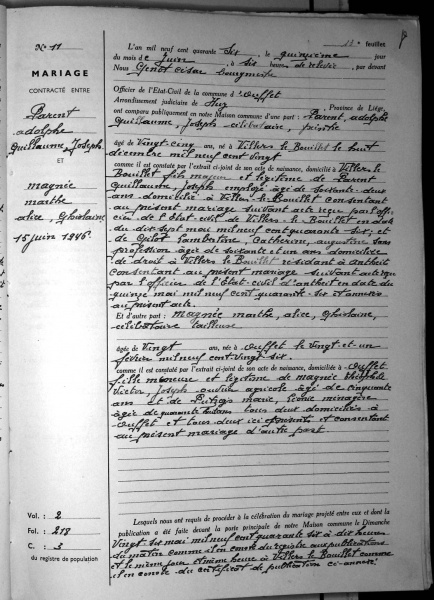 11e feuillet
N° 11
MARIAGE
CONTRACTÉ ENTRE
Parent
adolphe
Guillaume, Joseph
ET
magnée
marthe
alice, Ghislaine
15 juin 1946.
L'an mil neuf cent quarante Six, le quinzième jour
du mois de Juin, à six heures de relevée, par devant
Nous César bourgmestre
Officier de l'Etat-Civil de la commune d'Ouffet
Arrondissement judiciaire de Huy, Province de Liége,
ont comparu publiquement en notre Maison commune d'une part : Parent, adolphe
Guillaume, Joseph célibataire,
âgé de Vingt-cinq ans, né à Villers le Bouillet le huit
décembre mil neuf cent vingt
comme il est constaté par l'extrait ci-joint de son acte de naissance, domicilié à Villers le
Bouillet fils majeur et légitime de Parent
Guillaume, Joseph employé âgé de soixante-deux
ans domicilié à Villers-le-Bouillet consentant
au présent mariage suivant acte reçu par l'offi
cier de l'Etat-civil de Villers-le-Bouillet en date
du dix-sept mai mil neuf cent quarante six; et
de Catherine, augustine sans
profession âgée de soixante et un ans domiciliée
de droit à Villers le Bouillet résidant à Antheit
consentant au présent mariage suivant acte reçu
par l'officier de l'Etat-civil d'Antheit en date du
quinze mai mil neuf cent quarante-six et annexés
au présent acte.
Et d'autre part : magnée, marthe, alice, Ghislaine,
célibataire tailleuse
âgée de Vingt ans, née à Ouffet le vingt et un
février mil neuf cent vingt six.
comme il est constaté par l'extrait ci-joint de son acte de naissance, domiciliée à Ouffet
fille mineure et légitime de magnée Théophile
Victor, Joseph ouvrier agricole âgé de cinquante
ans et de marie, Léonie ménagère
âgée de quarante ans tous deux domiciliés à
Ouffet et tous deux ici présents et consentant
au présent mariage d'autre part.
Lesquels nous ont requis de procéder à la célébration du mariage projeté entre eux et dont la
publication a été faite devant la porte principale de notre Maison commune le Dimanche
Vingt-six mai mil neuf cent quarante six à dix heures
du matin comme il en conste du registre aux publications
et le même jour et même heure à Villers le Bouillet comme
il en conste du certificat de publication ci-annexé
Vol. : 2
Fol. : 218
C. : 3
du registre de population